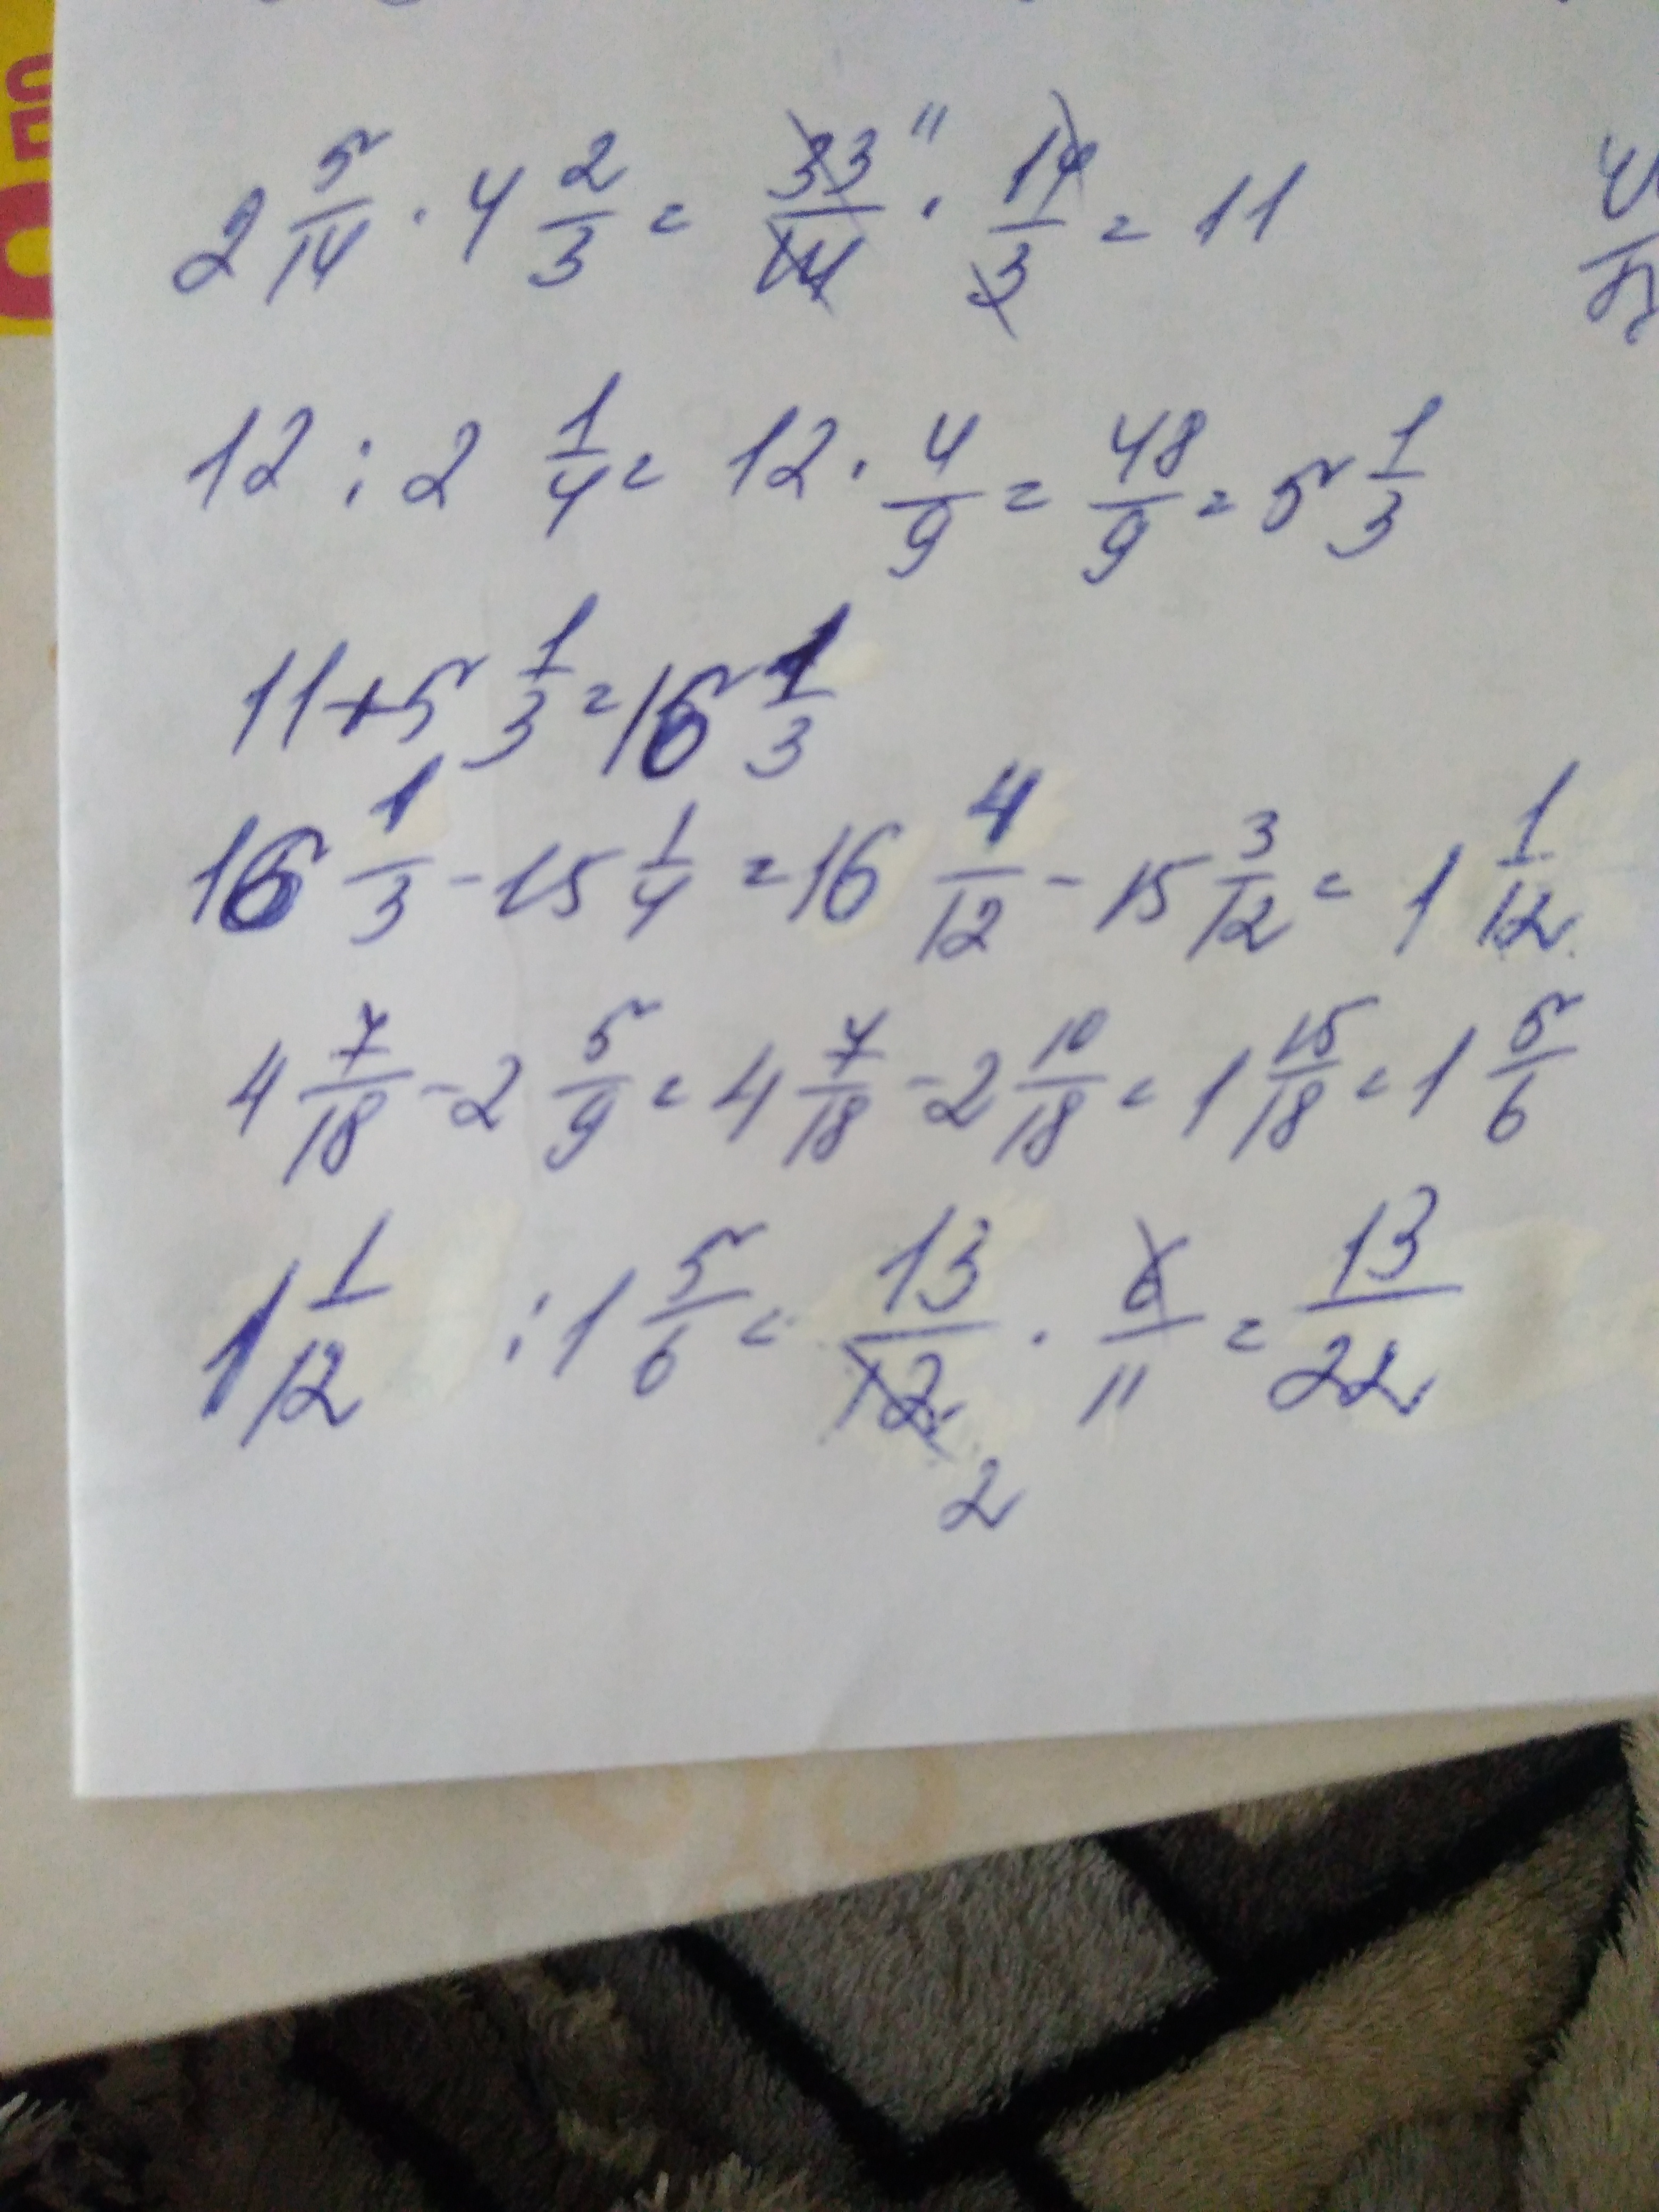 2 5/14 · 4 2/3 = 33/14 11 · 14/3 = 11
12 : 2 1/4 = 12 · 4/9 = 48/9 = 5 1/3
11 + 5 1/3 = 16 1/3
16 1/3 - 15 1/4 = 16 4/12 - 15 3/12 = 1 1/12
4 7/18 - 2 5/9 = 4 7/18 - 2 10/18 = 1 15/18 = 1 5/6
1 1/12 : 1 5/6 = 13/12 · 6/11 = 13/22
2